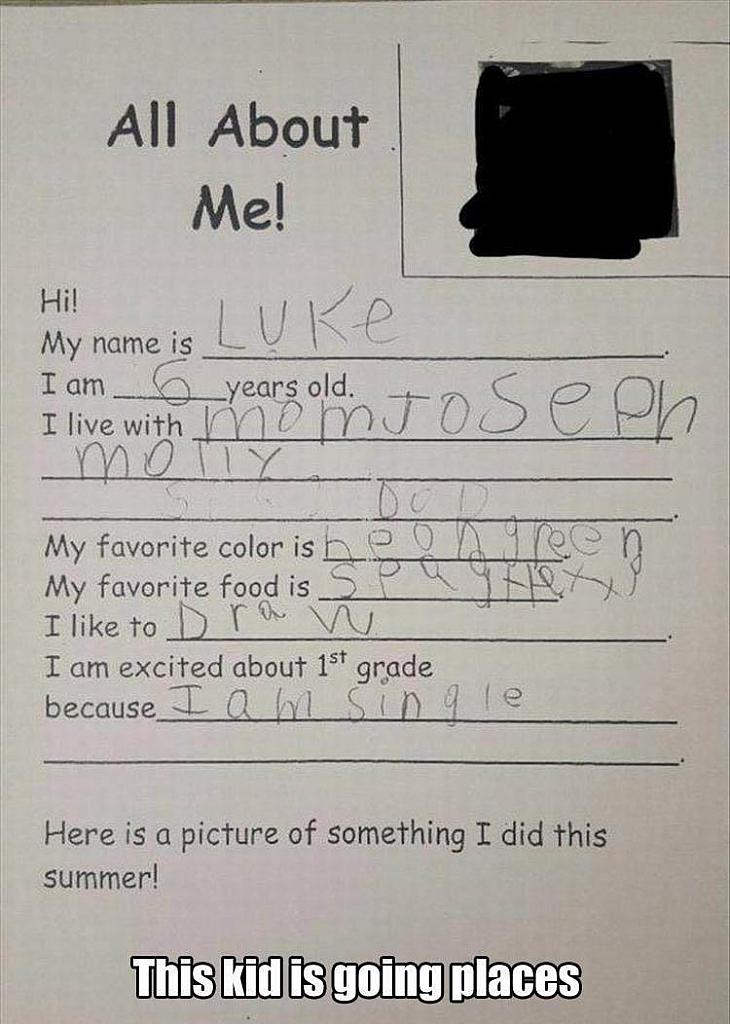 All About
Me!
Hi!
My name is LUKe.
I am 6 years old.
I live with mom JoSePh
molly
DOD.
My favorite color is neon green
My favorite food is SPagHetti
I like to Draw.
I am excited about 1st grade
because I am single
Here is a picture of something I did this
summer!
This kid is going places